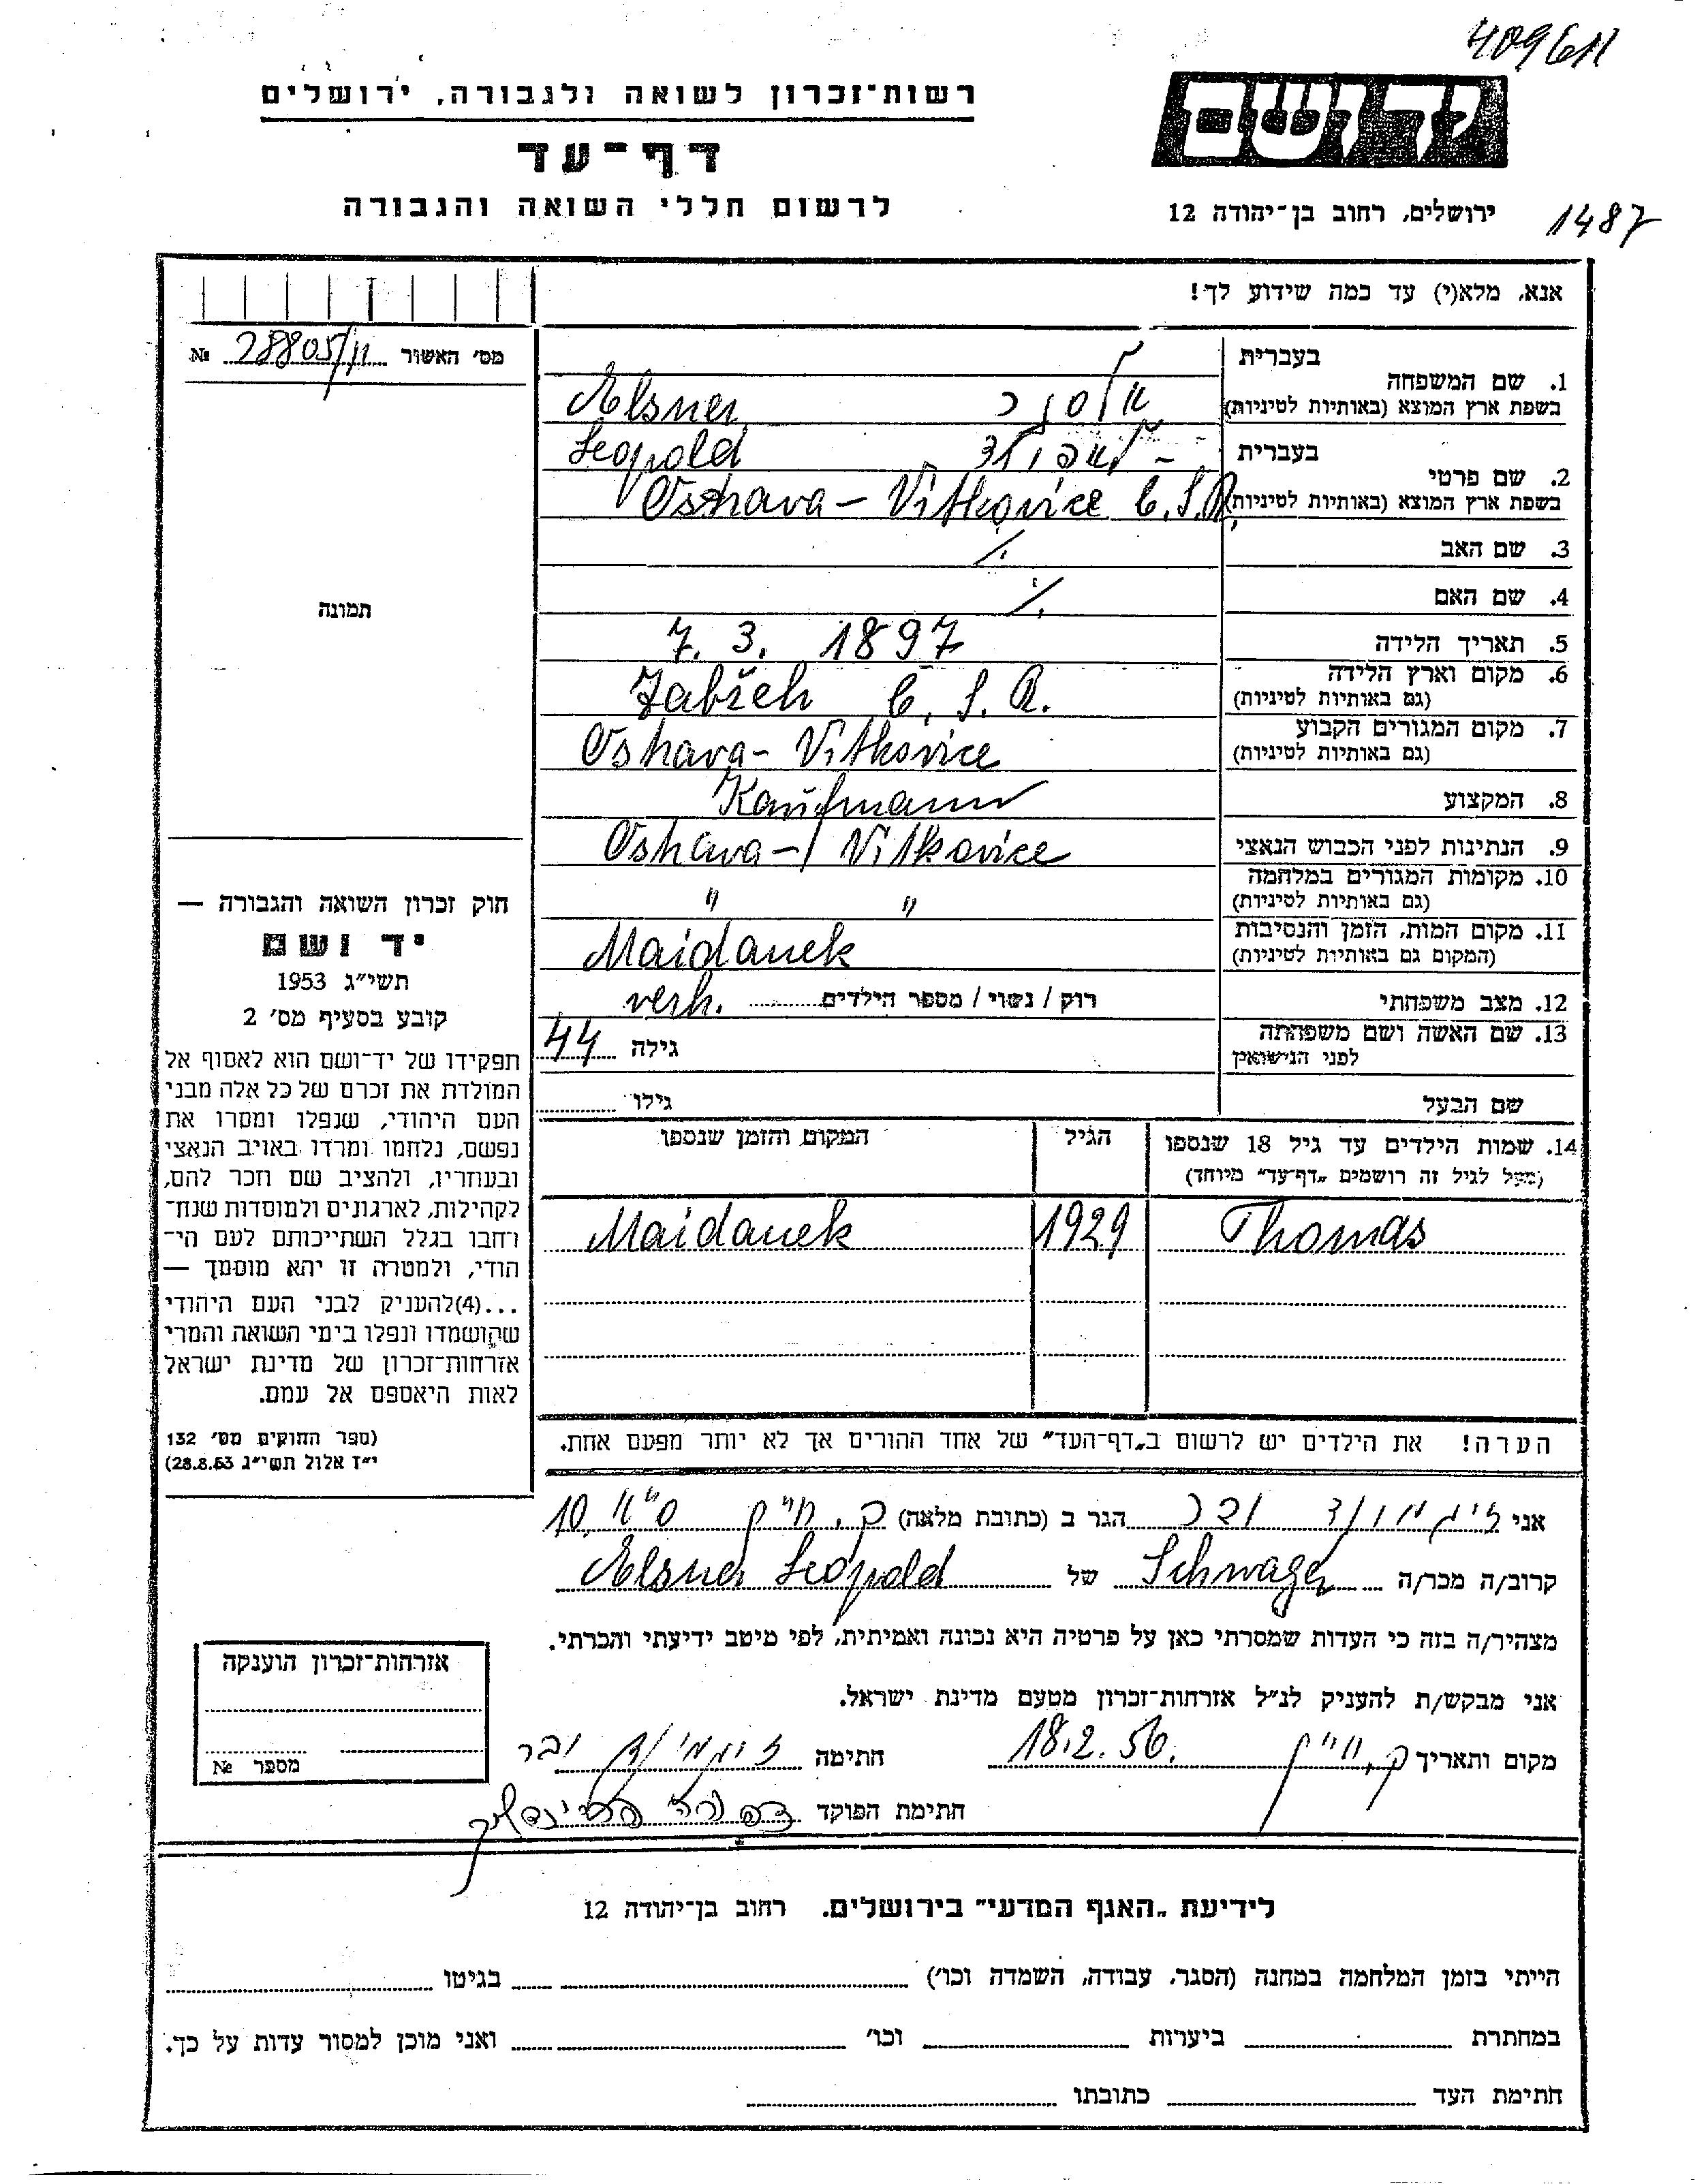 409611
רשות־זכרון לשואה ולגבורה, ירושלים
דף־עד
לרשום חללי השואה והגבורה
יד ושם
ירושלים, רחוב בן־יהודה 12
1487
אנא, מלא(י) עד כמה שידוע לך!
מס' האשור 28805/11 №
תמונה
1. שם המשפחה בעברית אלסנר
בשפת ארץ המוצא (באותיות לטיניות) Elsner
2. שם פרטי בעברית לאפולד
בשפת ארץ המוצא (באותיות לטיניות) Leopold
Ostrava - Vitkovice C.S.R.
3. שם האב ./.
4. שם האם ./.
5. תאריך הלידה 7. 3. 1897
6. מקום וארץ הלידה (גם באותיות לטיניות) Zabřeh C. S. R.
7. מקום המגורים הקבוע (גם באותיות לטיניות) Ostrava - Vitkovice
8. המקצוע Kaufmann
9. הנתינות לפני הכבוש הנאצי Ostrava - Vitkovice
10. מקומות המגורים במלחמה (גם באותיות לטיניות) " "
11. מקום המות, הזמן והנסיבות (המקום גם באותיות לטיניות) Maidanek
12. מצב משפחתי רוק / נשוי / מספר הילדים verh.
13. שם האשה ושם משפחתה לפני הנישואין גילה 44
שם הבעל גילו
14. שמות הילדים עד גיל 18 שנספו הגיל המקום והזמן שנספו
(מעל לגיל זה רושמים „דף־עד" מיוחד)
Thomas 1929 Maidanek
הערה! את הילדים יש לרשום ב„דף־העד" של אחד ההורים אך לא יותר מפעם אחת.
חוק זכרון השואה והגבורה —
יד ושם
תשי"ג 1953
קובע בסעיף מס' 2
תפקידו של יד־ושם הוא לאסוף אל
המולדת את זכרם של כל אלה מבני
העם היהודי, שנפלו ומסרו את
נפשם, נלחמו ומרדו באויב הנאצי
ובעוזריו, ולהציב שם וזכר להם,
לקהילות, לארגונים ולמוסדות שנח־
רבו בגלל השתייכותם לעם הי־
הודי, ולמטרה זו יהא מוסמך —
...(4)להעניק לבני העם היהודי
שהושמדו ונפלו בימי השואה והמרי
אזרחות־זכרון של מדינת ישראל
לאות היאספם אל עמם.
(ספר החוקים מס' 132
י"ז אלול תשי"ג 28.8.53)
אני זיגמונד ובר הגר ב (כתובת מלאה) ק. חיים 10
קרוב/ה מכר/ה Schwager של Elsner Leopold
מצהיר/ה בזה כי העדות שמסרתי כאן על פרטיה היא נכונה ואמיתית, לפי מיטב ידיעתי והכרתי.
אני מבקש/ת להעניק לנ"ל אזרחות־זכרון מטעם מדינת ישראל.
מקום ותאריך ק. חיים 18.2.56. חתימה זיגמונד ובר
חתימת הפוקד
אזרחות־זכרון הוענקה
מספר №
לידיעת „האגף המדעי" בירושלים. רחוב בן־יהודה 12
הייתי בזמן המלחמה במחנה (הסגר, עבודה, השמדה וכו') בגיטו
במחתרת ביערות וכו' ואני מוכן למסור עדות על כך.
חתימת העד כתובתו